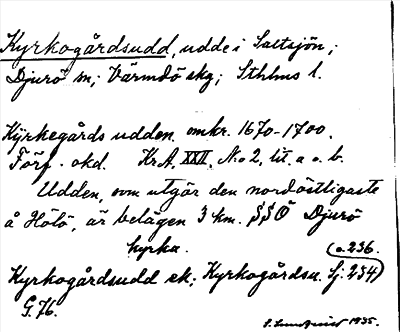 Kyrkogårdsudd, udde i Saltsjön;
Djurö sn; Värmdö skg; Sthlms l.
Kÿrkegårds udden omkr. 1670-1700.
Förf. okd. Kr.A. XXII, N:o 2, lit. a o. b.
Udden, som utgör den nordöstligaste
å Holö, är belägen 3 km. SSÖ Djurö
kyrka. (a.236.
Kyrkogårdsudd ek; Kyrkogårdsu. Sj. 234)
G. 76.
1935.